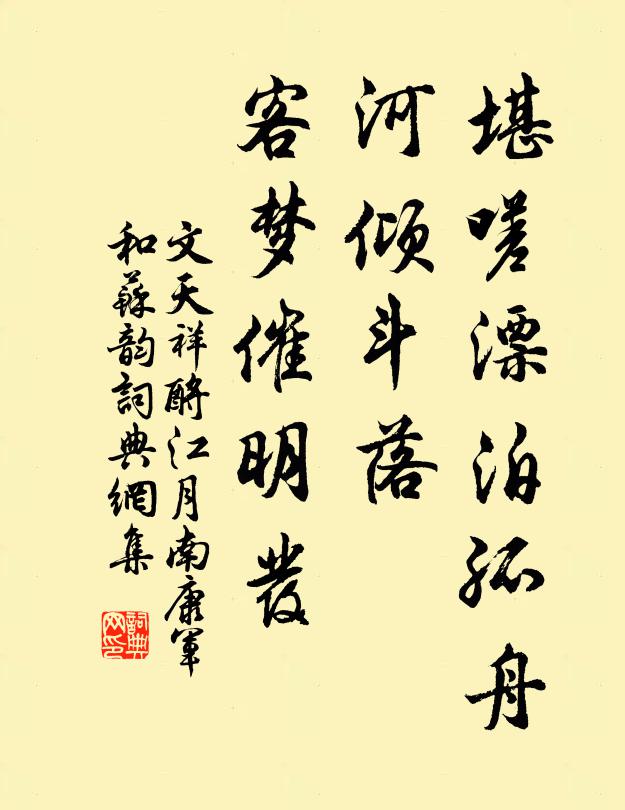 堪嗟漂泊孤舟
河倾斗落
客梦催明發
文天祥酹江月南康軍
和蘇韵詞典網集
詞典
网印